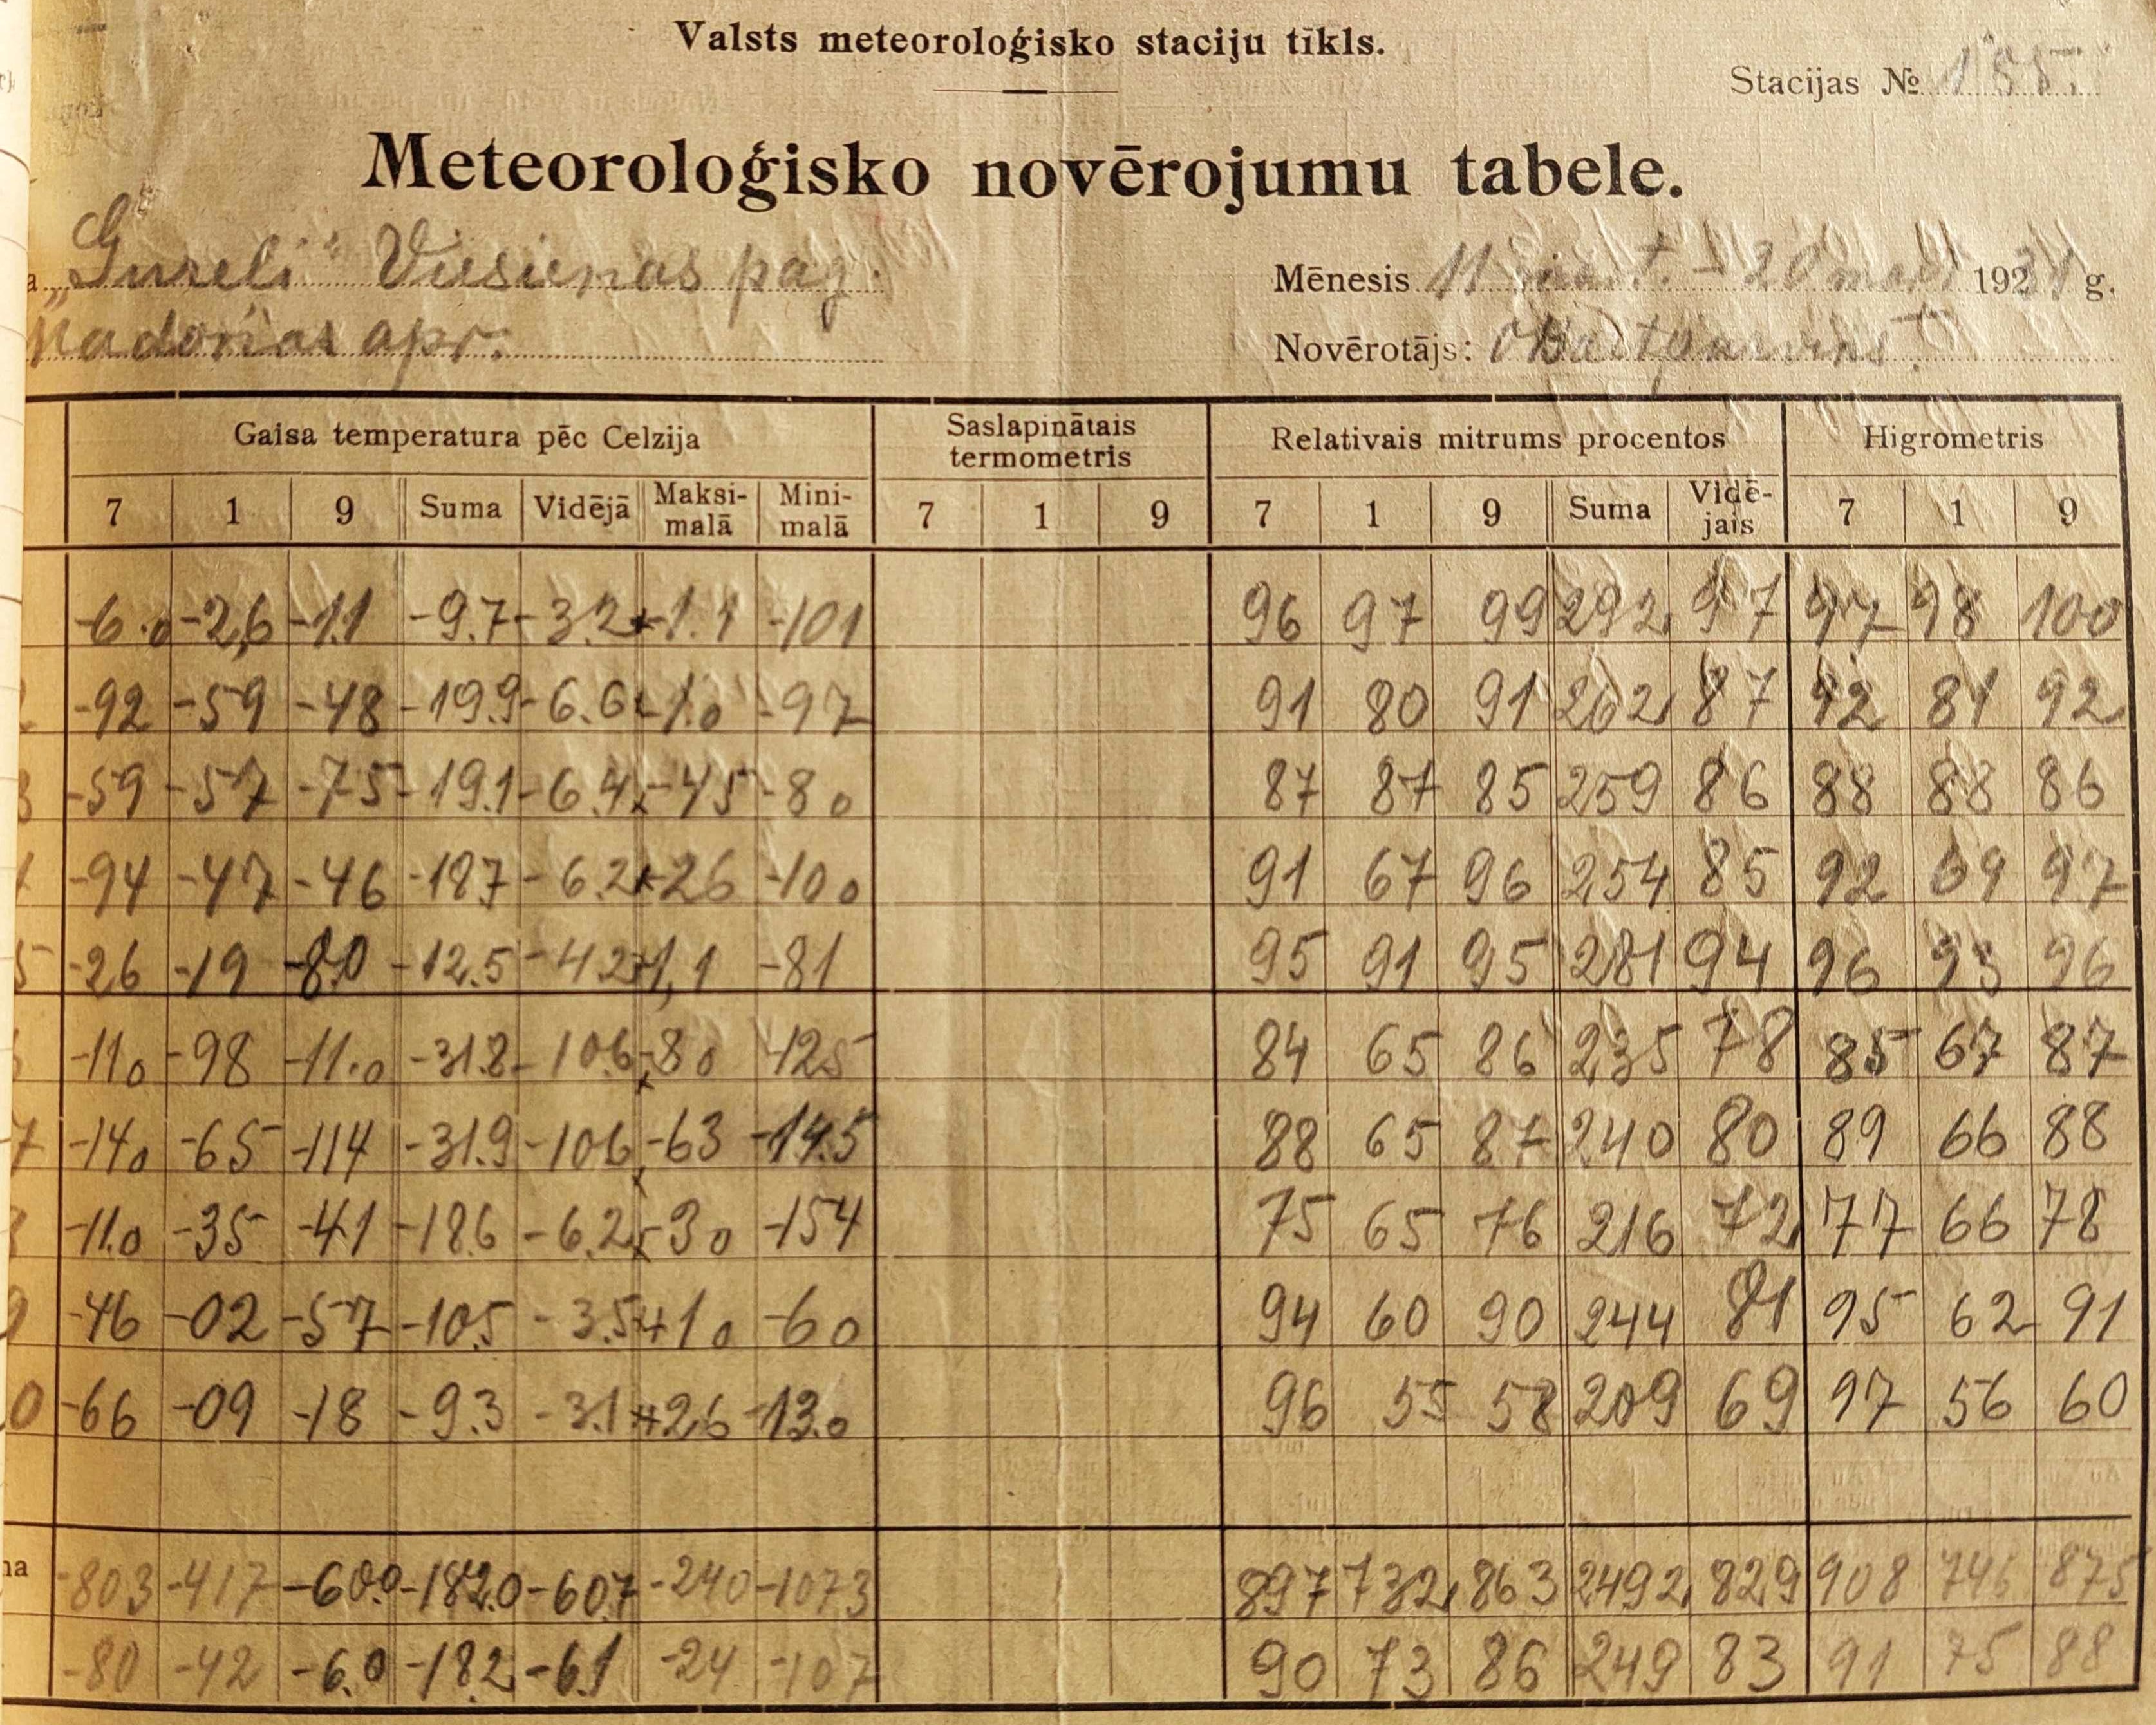 Valsts meteoroloģisko staciju tīkls.
Stacijas № 155.
Meteoroloģisko novērojumu tabele.
pag.
Mēnesis 11 mart. - 20 mart 1931 g.
Madonas apr.
Novērotājs:
Gaisa temperatura pēc Celzija Saslapinātais termometris Relativais mitrums procentos Higrometris
7 1 9 Suma Vidējā Maksi-malā Mini-malā 7 1 9 7 1 9 Suma Vidē-jais 7 1 9
-6.0 -2,6 -1.1 -9.7 -3.2 +1.1 -101 96 97 99 292 97 97 98 100
-92 -59 -48 -19.9 -6.6 -1.0 -97 91 80 91 262 87 92 81 92
-59 -57 -75 -19.1 -6.4 -45 -80 87 87 85 259 86 88 88 86
-94 -47 -46 -187 -6.2 -26 -100 91 67 96 254 85 92 69 97
5 -26 -19 -80 -12.5 -42 +1,1 -81 95 91 95 281 94 96 93 96
-110 -98 -11.0 -31.8 -106 -80 -125 84 65 86 235 78 85 67 87
7 -140 -65 -114 -31.9 -106 -63 -14.5 88 65 87 240 80 89 66 88
-11.0 -35 -41 -186 -6.2 -30 -154 75 65 76 216 72 77 66 78
9 -46 -02 -57 -105 -3.5 +10 -60 94 60 90 244 81 95 62 91
0 -66 -09 -18 -9.3 -3.1 +26 -13.0 96 55 58 209 69 97 56 60
na -803 -417 -60.0 -182.0 -60.7 -240 -1073 897 732 863 2492 829 908 746 875
-80 -42 -6.0 -18.2 -6.1 -24 -107 90 73 86 249 83 91 75 88